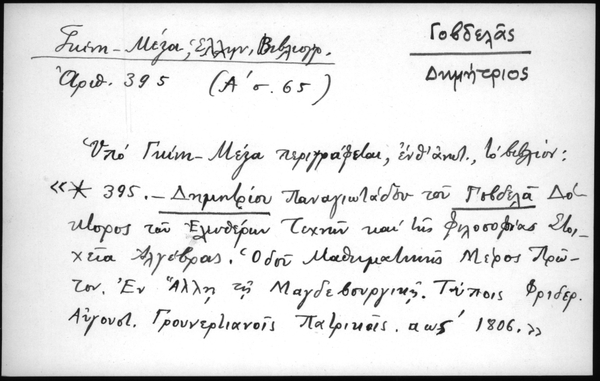 Γκίνη - Μέξα, Ἑλλην. Βιβλιογρ.
Ἀριθ. 395 (Α' σ. 65)
Γοβδελᾶς
Δημήτριος
Ὑπό Γκίνη - Μέξα περιγράφεται, ἐνθ' ἀνωτ., τό βιβλίον:
«* 395. — Δημητρίου Παναγιωτάδου τοῦ Γοβδελᾶ Δό-
κτορος τῶν Ἐλευθέρων Τεχνῶν καί τῆς Φιλοσοφίας Στοι-
χεῖα Ἀλγέβρας. Ὁδοῦ Μαθηματικῆς Μέρος Πρῶ-
τον. Ἐν Ἅλλῃ τῇ Μαγδεβουργικῇ. Τύποις Φριδερ.
Αὐγουστ. Γρουνερτιανοῖς Πατρικοῖς. αως' 1806.»